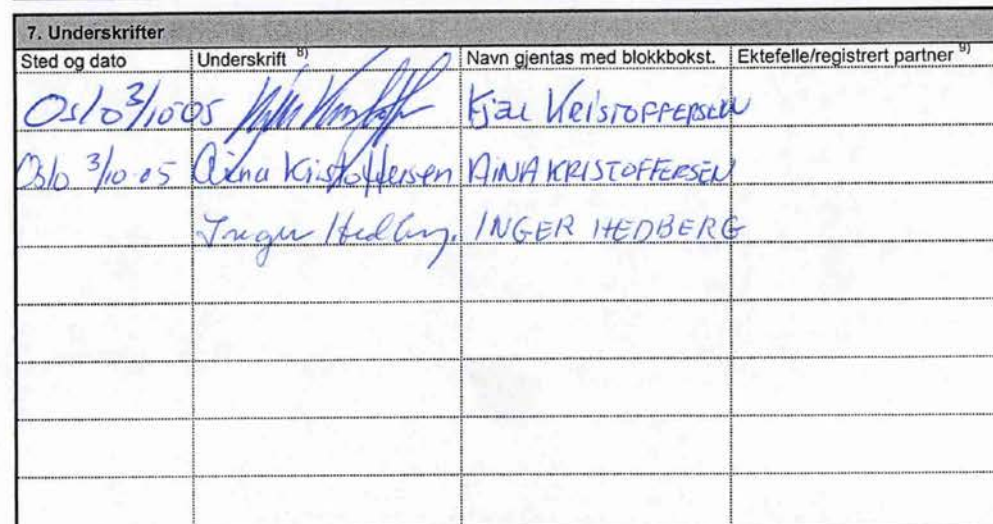 7. Underskrifter
Sted og dato Underskrift 8) Navn gjentas med blokkbokst. Ektefelle/registrert partner 9)
Oslo 3/10-05 KRISTOFFERSEN
Oslo 3/10-05 Aina Kristoffersen AINA KRISTOFFERSEN
Inger Hedberg. INGER HEDBERG